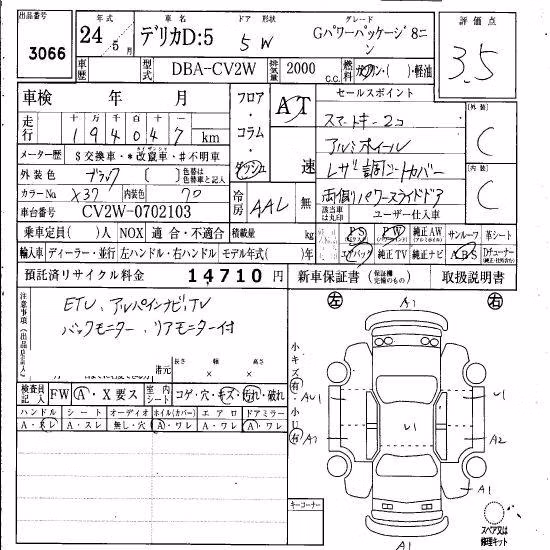 出品番号 年式 車名 ドア 形状 グレード 評価点
3066 24年5月 デリカD:5 5 W Gパワーパッケージ8ニン 3.5
車歴 型式 DBA-CV2W 排気量 2000 c.c. 燃料 ガソリン・( )・軽油
車検 年 月 フロア・コラム・ダッシュ AT 速 セールスポイント
走行 十万 万 千 百 十 一
194047 km
スマートキー2コ
アルミホイール
レザー調シートカバー
両側パワースライドドア
外装 C
内装 C
メーター歴 $交換車・*改竄車・#不明車
外装色 ブラック ( ) 色替は色替車と記入
カラーNo X37 内装色 70 冷房 AAC 無 該当車は丸印 ユーザー仕入車
車台番号 CV2W-0702103
乗車定員 ( )人 NOX 適合・不適合 積載量 kg PS PW 純正AW サンルーフ 革シート
輸入車 ディーラー・並行 左ハンドル・右ハンドル モデル年式( ) エアバック 純正TV 純正ナビ ABS Dチューナー
預託済リサイクル料金 14710円 新車保証書 取扱説明書
注意事項(出品店記入)
ETC、アルパインナビ、TV
バックモニター、リアモニター付
諸元 長さ × 幅 × 高さ
検査員記入 FW A・X要ス 室内シート コゲ・穴・キズ・汚れ・破れ
ハンドル シート オーディオ ホイル(カバー) エアロ ドアミラー
A・スレ A・スレ 無し・穴 A・ワレ A・ワレ A・ワレ
キーコーナー
小キズ 有・小U 有
左 A1 右
AU1 U1
U1
A1 A2
A1
A1
スペア又は修理キット